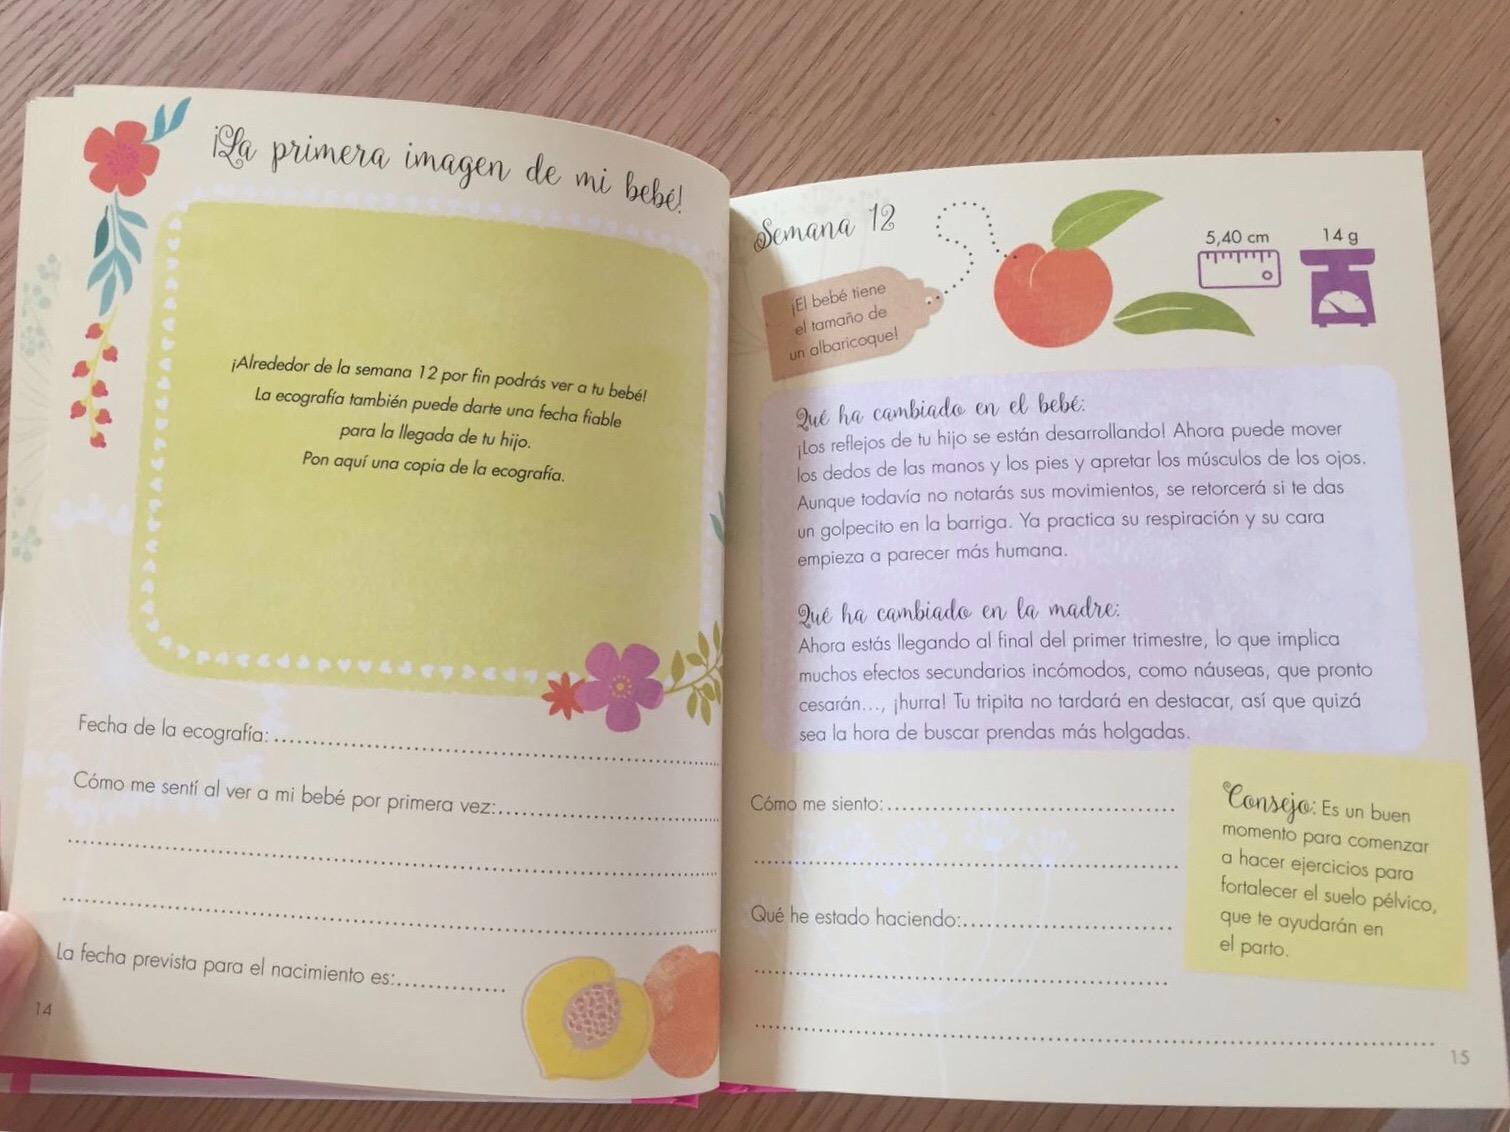 ¡La primera imagen de mi bebé!
¡Alrededor de la semana 12 por fin podrás ver a tu bebé!
La ecografía también puede darte una fecha fiable
para la llegada de tu hijo.
Pon aquí una copia de la ecografía.
Fecha de la ecografía:
Cómo me sentí al ver a mi bebé por primera vez:
La fecha prevista para el nacimiento es:
14
Semana 12
¡El bebé tiene
el tamaño de
un albaricoque!
5,40 cm
14 g
Qué ha cambiado en el bebé:
¡Los reflejos de tu hijo se están desarrollando! Ahora puede mover
los dedos de las manos y los pies y apretar los músculos de los ojos.
Aunque todavía no notarás sus movimientos, se retorcerá si te das
un golpecito en la barriga. Ya practica su respiración y su cara
empieza a parecer más humana.
Qué ha cambiado en la madre:
Ahora estás llegando al final del primer trimestre, lo que implica
muchos efectos secundarios incómodos, como náuseas, que pronto
cesarán..., ¡hurra! Tu tripita no tardará en destacar, así que quizá
sea la hora de buscar prendas más holgadas.
Cómo me siento:
Qué he estado haciendo:
Consejo: Es un buen
momento para comenzar
a hacer ejercicios para
fortalecer el suelo pélvico,
que te ayudarán en
el parto.
15